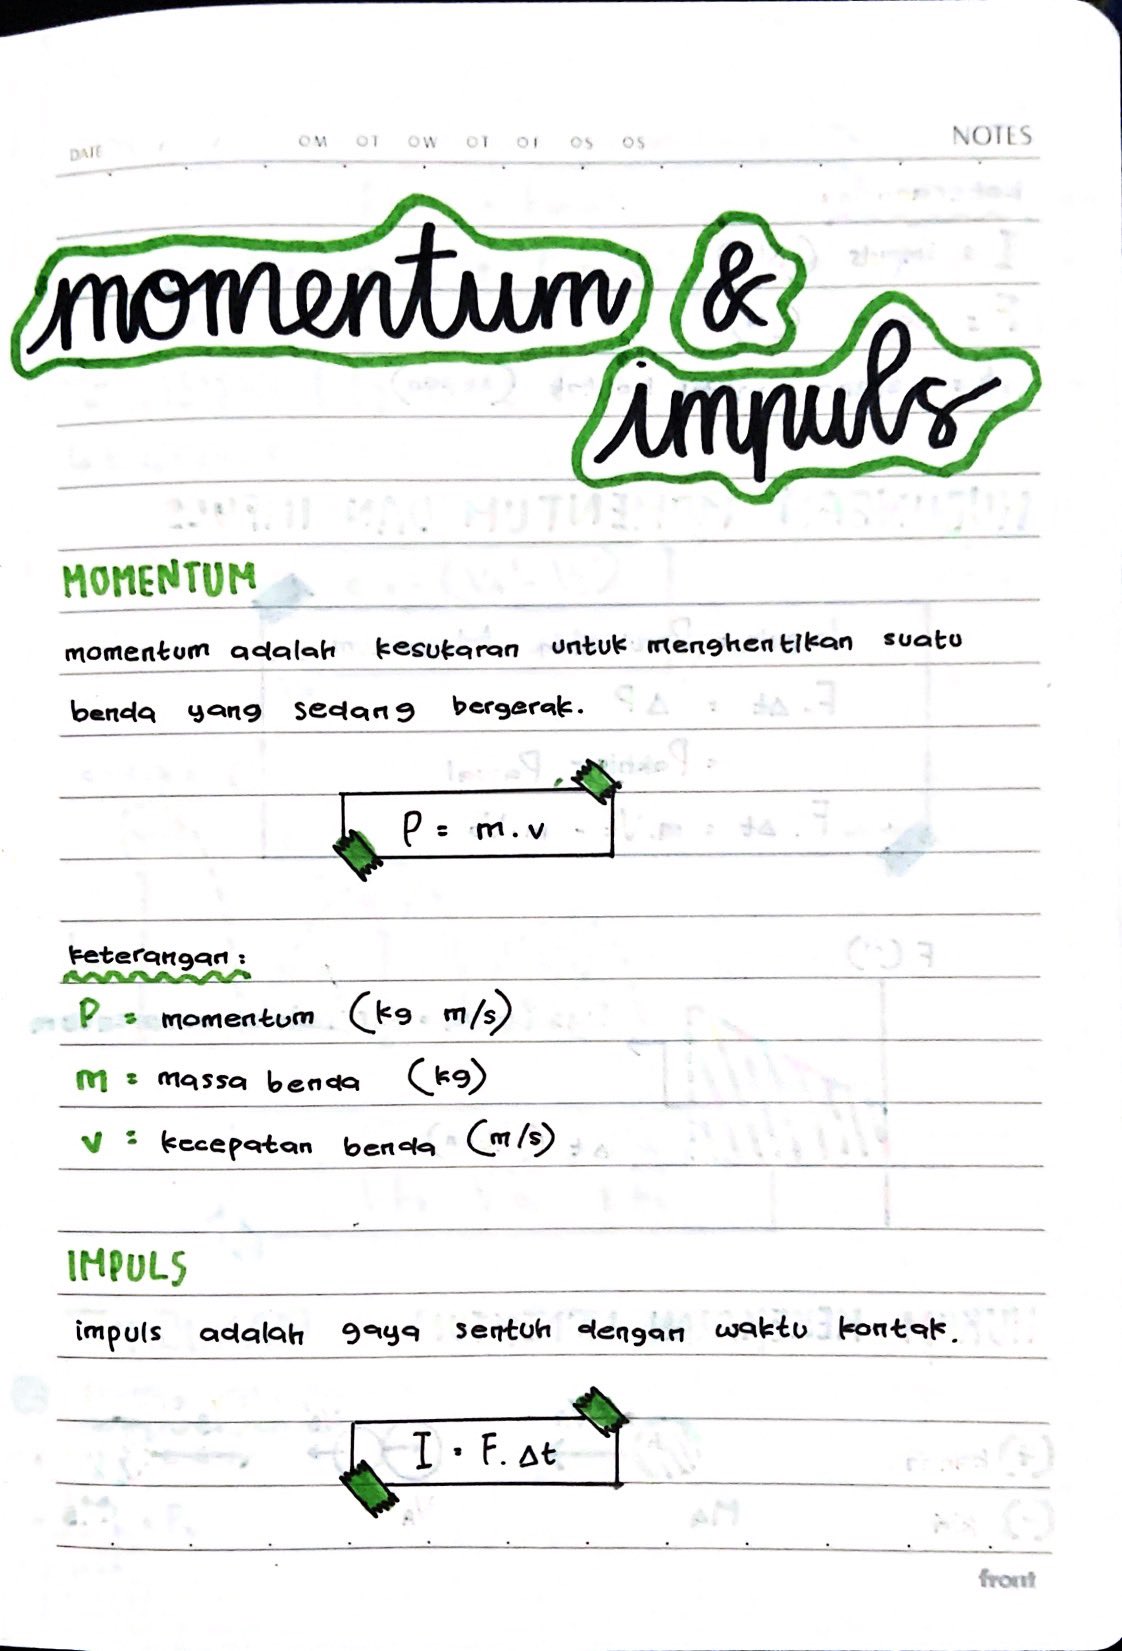 DATE / / OM OT OW OT OF OS OS NOTES
momentum &
impuls
MOMENTUM
momentum adalah kesukaran untuk menghentikan suatu
benda yang sedang bergerak.
P = m.v
keterangan :
P = momentum (kg m/s)
m = massa benda (kg)
v = kecepatan benda (m/s)
IMPULS
impuls adalah gaya sentuh dengan waktu kontak.
I = F. Δt
front